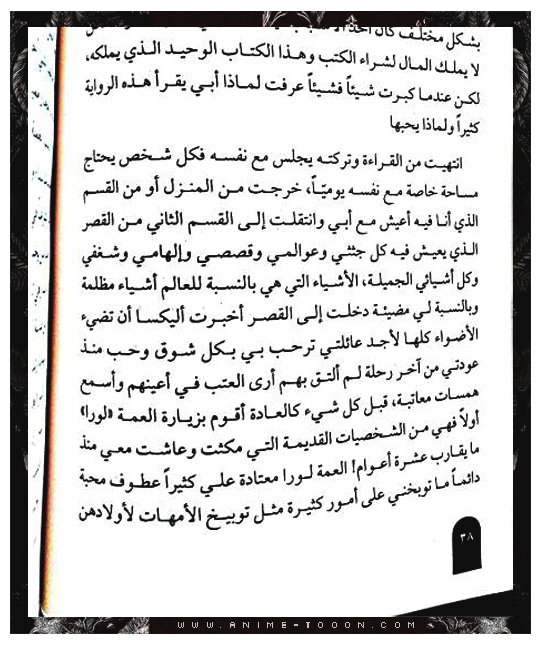 بشكل مختلف كان
لا يملك المال لشراء الكتب وهذا الكتاب الوحيد الذي يملكه،
لكن عندما كبرت شيئاً فشيئاً عرفت لماذا أبي يقرأ هذه الرواية
كثيراً ولماذا يحبها
انتهيت من القراءة وتركته يجلس مع نفسه فكل شخص يحتاج
مساحة خاصة مع نفسه يوميّاً، خرجت من المنزل أو من القسم
الذي أنا فيه أعيش مع أبي وانتقلت إلى القسم الثاني من القصر
الذي يعيش فيه كل جثثي وعوالمي وقصصي وإلهامي وشغفي
وكل أشيائي الجميلة، الأشياء التي هي بالنسبة للعالم أشياء مظلمة
وبالنسبة لي مضيئة دخلت إلى القصر أخبرت أليكسا أن تضيء
الأضواء كلها لأجد عائلتي ترحب بي بكل شوق وحب منذ
عودتي من آخر رحلة لم ألتق بهم أرى العتب في أعينهم وأسمع
همسات معاتبة، قبل كل شيء كالعادة أقوم بزيارة العمة «لورا»
أولاً فهي من الشخصيات القديمة التي مكثت وعاشت معي منذ
ما يقارب عشرة أعوام! العمة لورا معتادة علي كثيراً عطوف محبة
دائماً ما توبخني على أمور كثيرة مثل توبيخ الأمهات لأولادهن
٣٨
WWW.ANIME-TOOON.COM